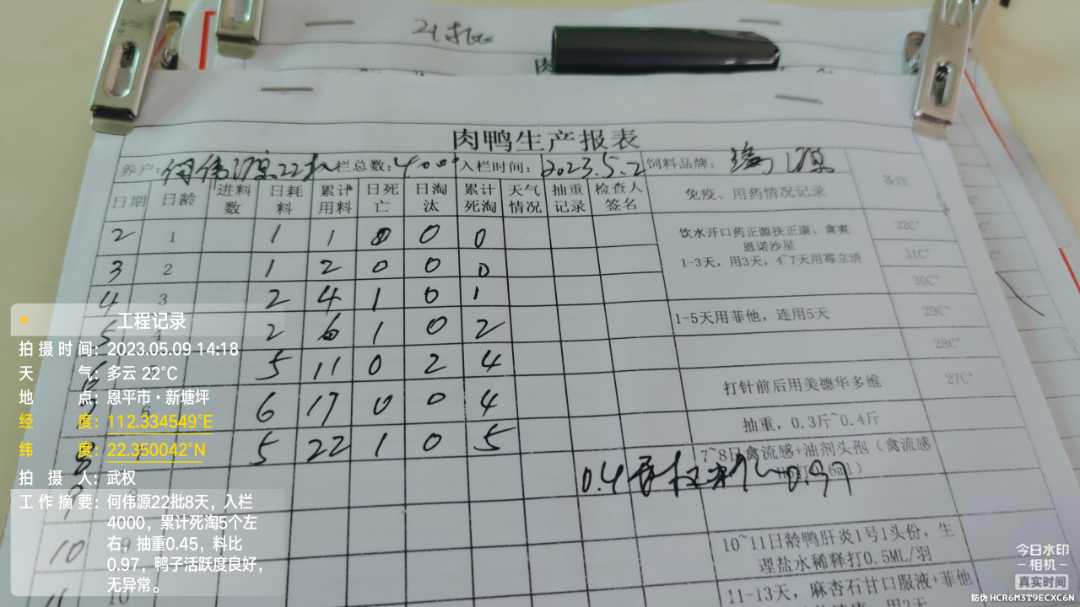 21批
肉鸭生产报表
养户: 何伟源22批 入栏总数: 4000 入栏时间: 2023.5.2 饲料品牌:
日期 日龄 进料数 日耗料 累计用料 日死亡 日淘汰 累计死淘 天气情况 抽重记录 检查人签名 免疫、用药情况记录 备注
2 1 1 1 0 0 0 32C°
饮水开口药正源扶正康、禽爽
恩诺沙星
1-3天，用3天，4~7天用霉立清
3 2 1 2 0 0 0 31C°
4 3 2 4 1 0 1 30C°
5 2 6 1 0 2 1-5天用菲他，连用5天 29C°
5 11 0 2 4 28C°
6 6 17 0 0 4 打针前后用美德华多维 27C°
5 22 1 0 5 抽重，0.3斤~0.4斤
7~8日禽流感+油剂头孢（禽流感
0.97
9
10 9 10~11日龄鸭肝炎1号1头份，生
理盐水稀释打0.5ML/羽
11 10 11-13天，麻杏石甘口服液+菲他
工程记录
拍摄时间: 2023.05.09 14:18
天气: 多云 22°C
地点: 恩平市·新塘坪
经度: 112.334549°E
纬度: 22.350042°N
拍摄人: 武权
工作摘要: 何伟源22批8天，入栏
4000，累计死淘5个左
右，抽重0.45，料比
0.97，鸭子活跃度良好，
无异常。
今日水印
-相机-
真实时间
防伪 HCR6M3T9ECXC6N